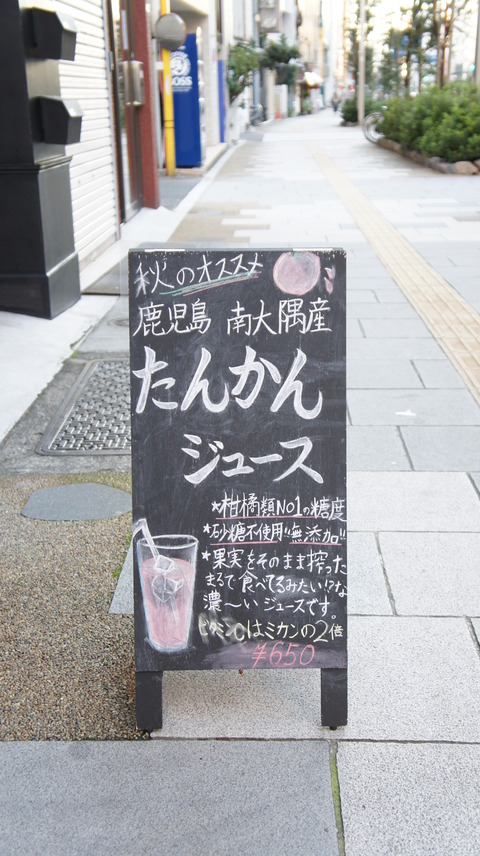 秋のオススメ
鹿児島 南大隅産
たんかん
ジュース
★柑橘類NO1の糖度
★砂糖不使用!!無添加!!
★果実をそのまま搾った
まるで食べてるみたい!?な
濃〜い ジュースです。
ビタミンCはミカンの2倍
¥650
BOSS